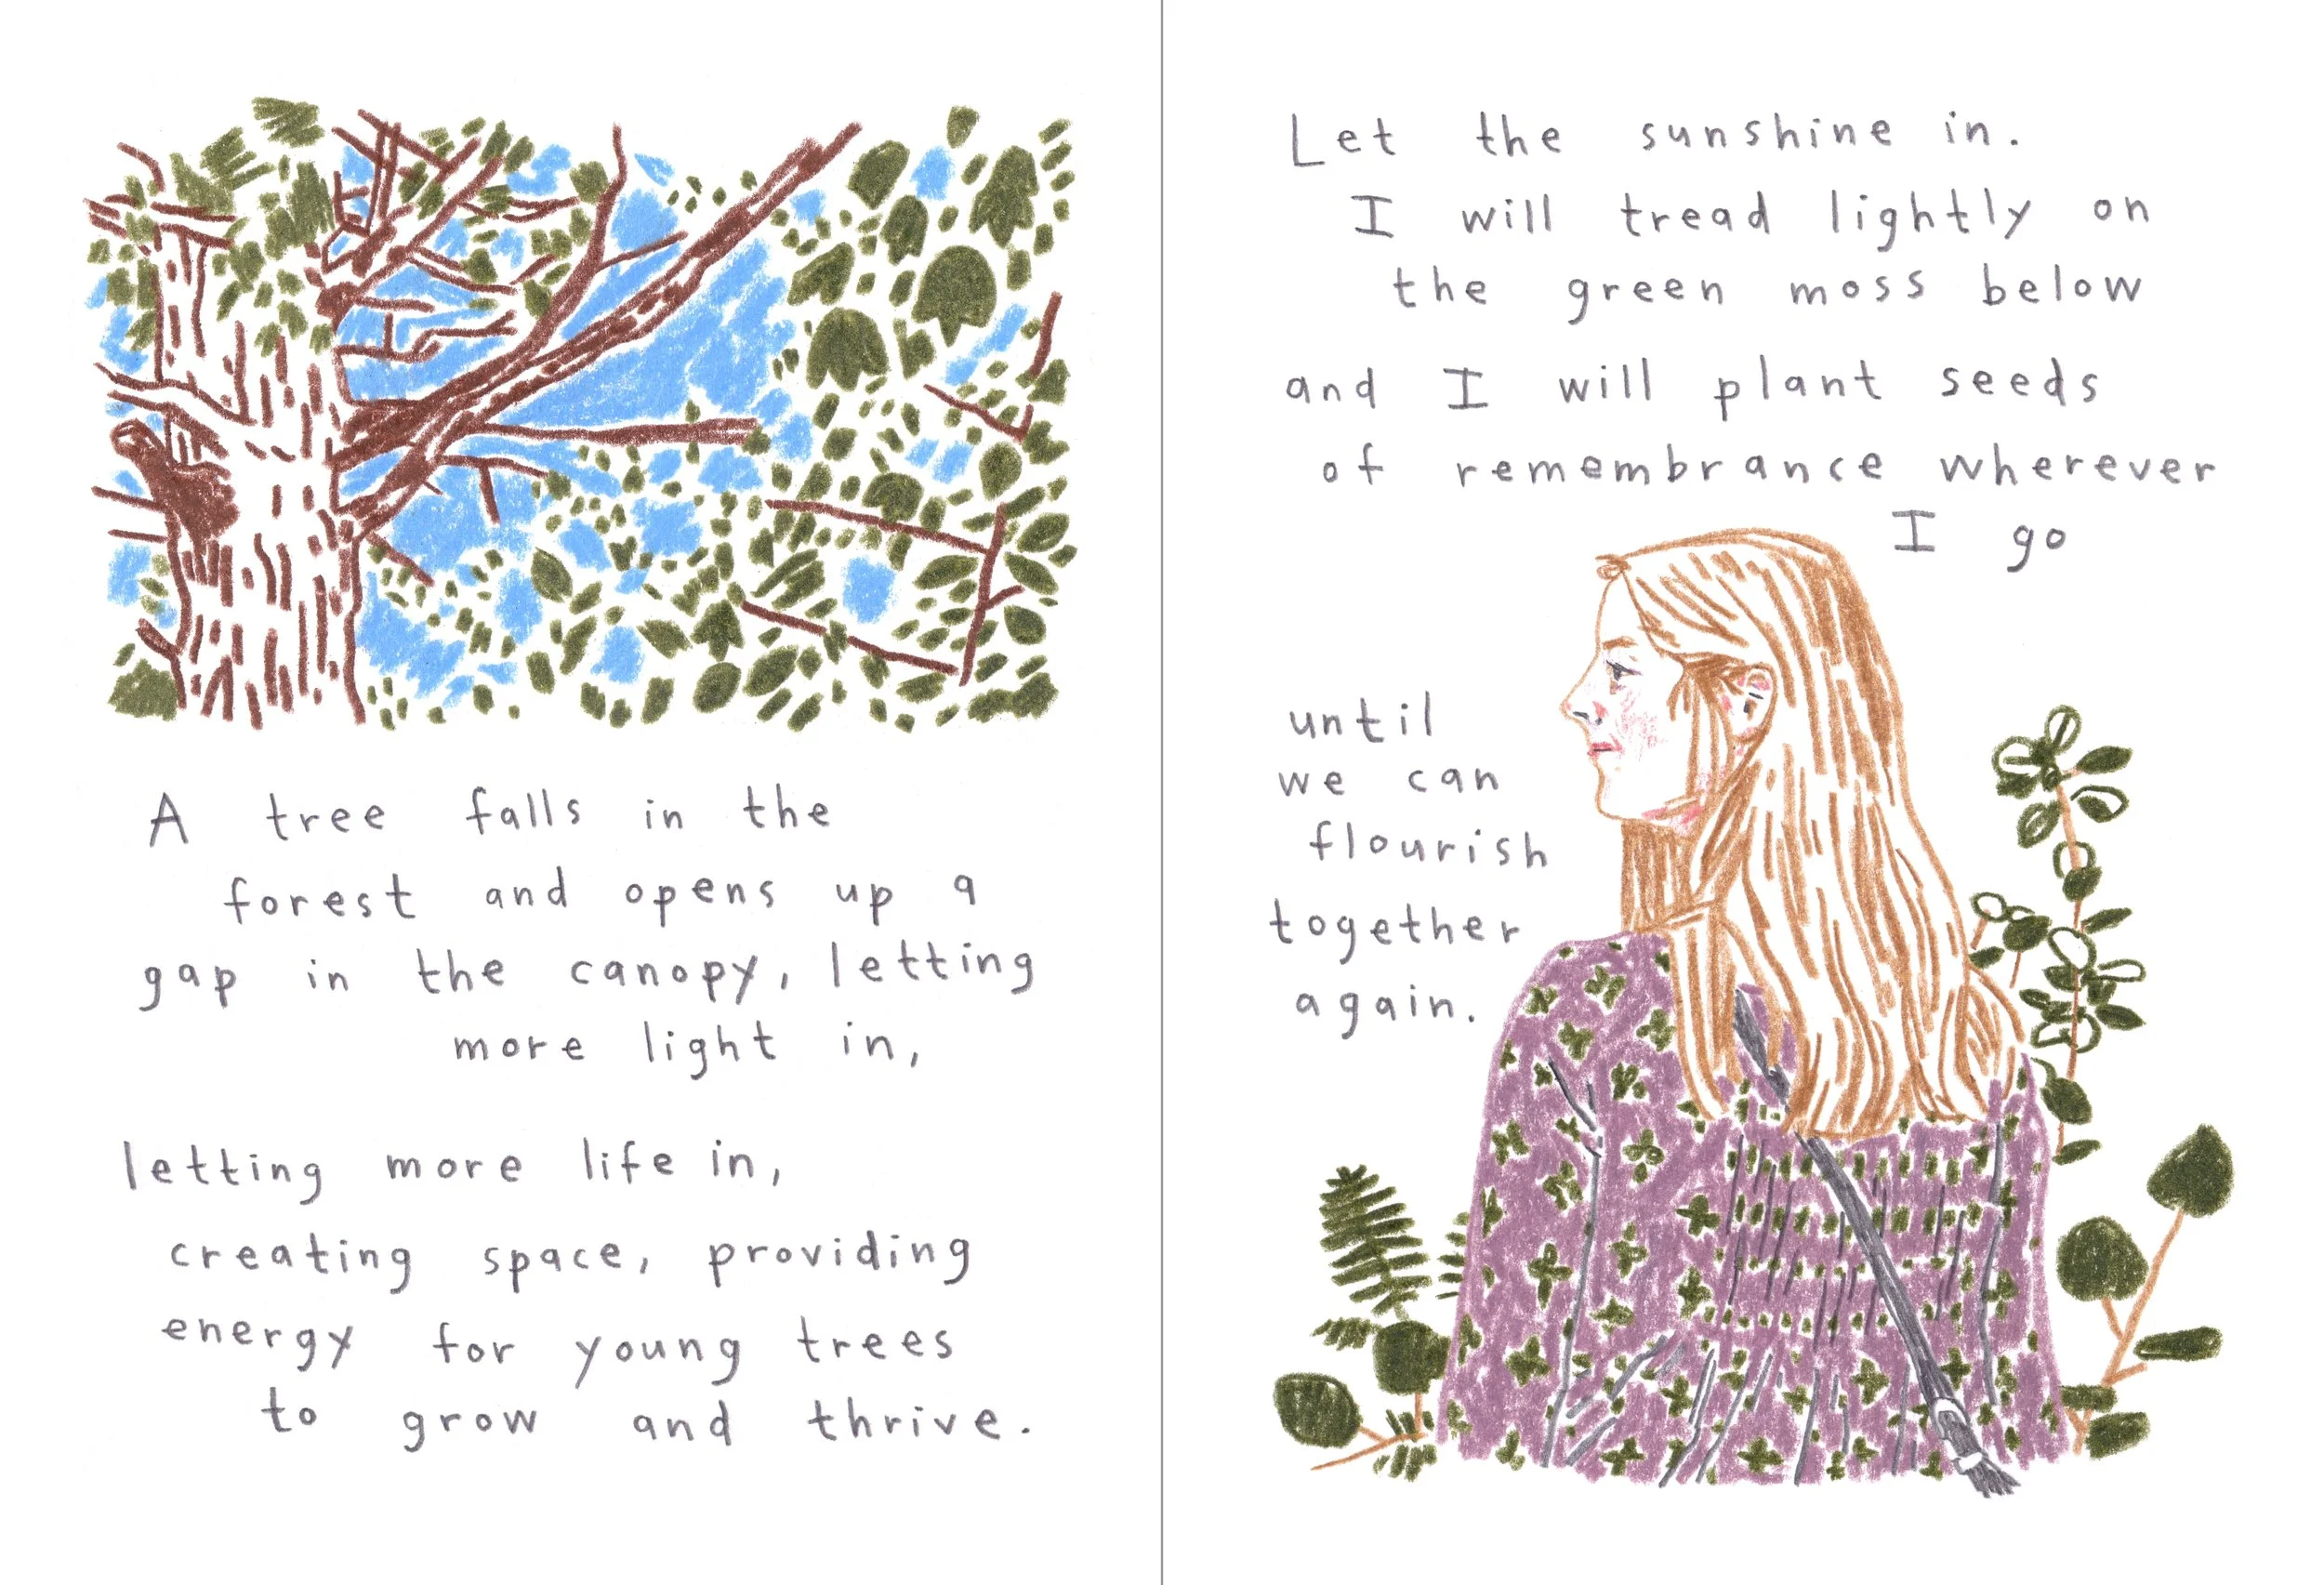 A tree falls in the
forest and opens up a
gap in the canopy, letting
more light in,
letting more life in,
creating space, providing
energy for young trees
to grow and thrive.
Let the sunshine in.
I will tread lightly on
the green moss below
and I will plant seeds
of remembrance wherever
I go
until
we can
flourish
together
again.